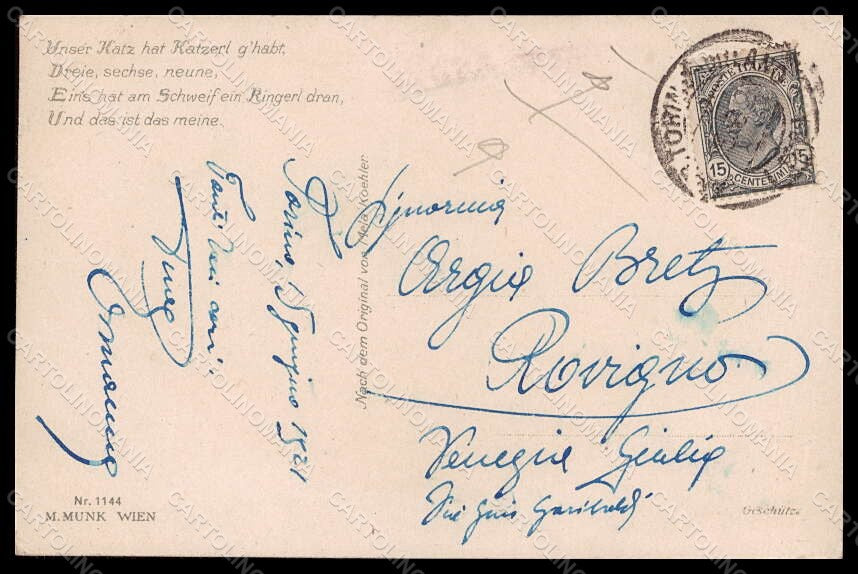 Unser Katz hat Katzerl g'habt,
Dreie, sechse, neune,
Eins hat am Schweif ein Ringerl dran,
Und das ist das meine.
TORINO
POSTE ITALIANE
15 CENTESIMI 15
Torino, giugno 1921
Tanti baci cari
Nach dem Original von Mela Koehler
Signorina
Argia Bretz
Rovigno
Venezia Giulia
Via Garibaldi
Nr. 1144
M. MUNK WIEN
Geschützt
CARTOLINOMANIA